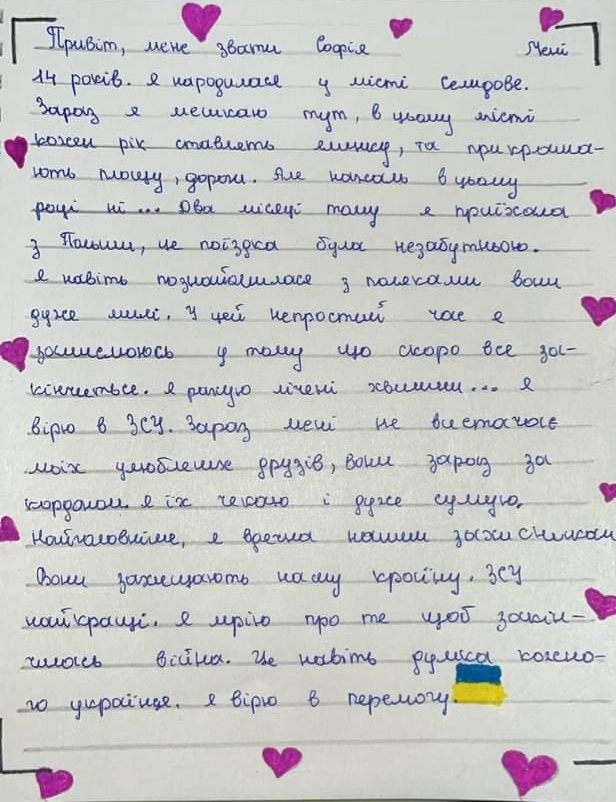 Привіт, мене звати Софія Мені
14 років. я народилася у місті Селидове.
Зараз я мешкаю тут, в цьому місті
кожен рік ставлять ялинку, та прикраша-
ють площу, дороги. Але нажаль в цьому
році ні... Два місяці тому я приїхала
з Польши, це поїздка була незабутньою.
я навіть познайомилася з поляками вони
дуже милі. У цей непростий час я
залишаюсь у тому що скоро все за-
кінчиться. я рахую лічені хвилини... я
вірю в ЗСУ. Зараз мені не вистачає
моїх улюблених друзів, вони зараз за
кордоном. я їх чекаю і дуже сумую.
Найголовніше, я вдячна нашим захисникам
Вони захищають нашу країну. ЗСУ
найкращі. я мрію про те щоб закін-
чилась війна. Це навіть думка кожно-
го українця. я вірю в перемогу.